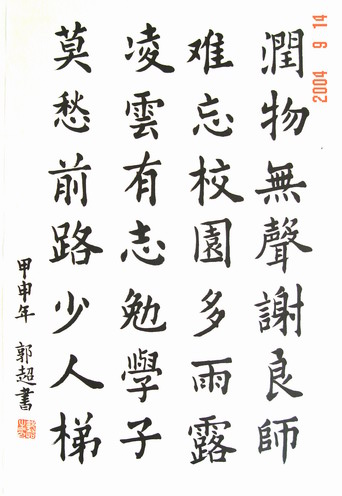 潤物無聲謝良師
难忘校園多雨露
凌雲有志勉學子
莫愁前路少人梯
甲申年 郭超書
2004 9 14